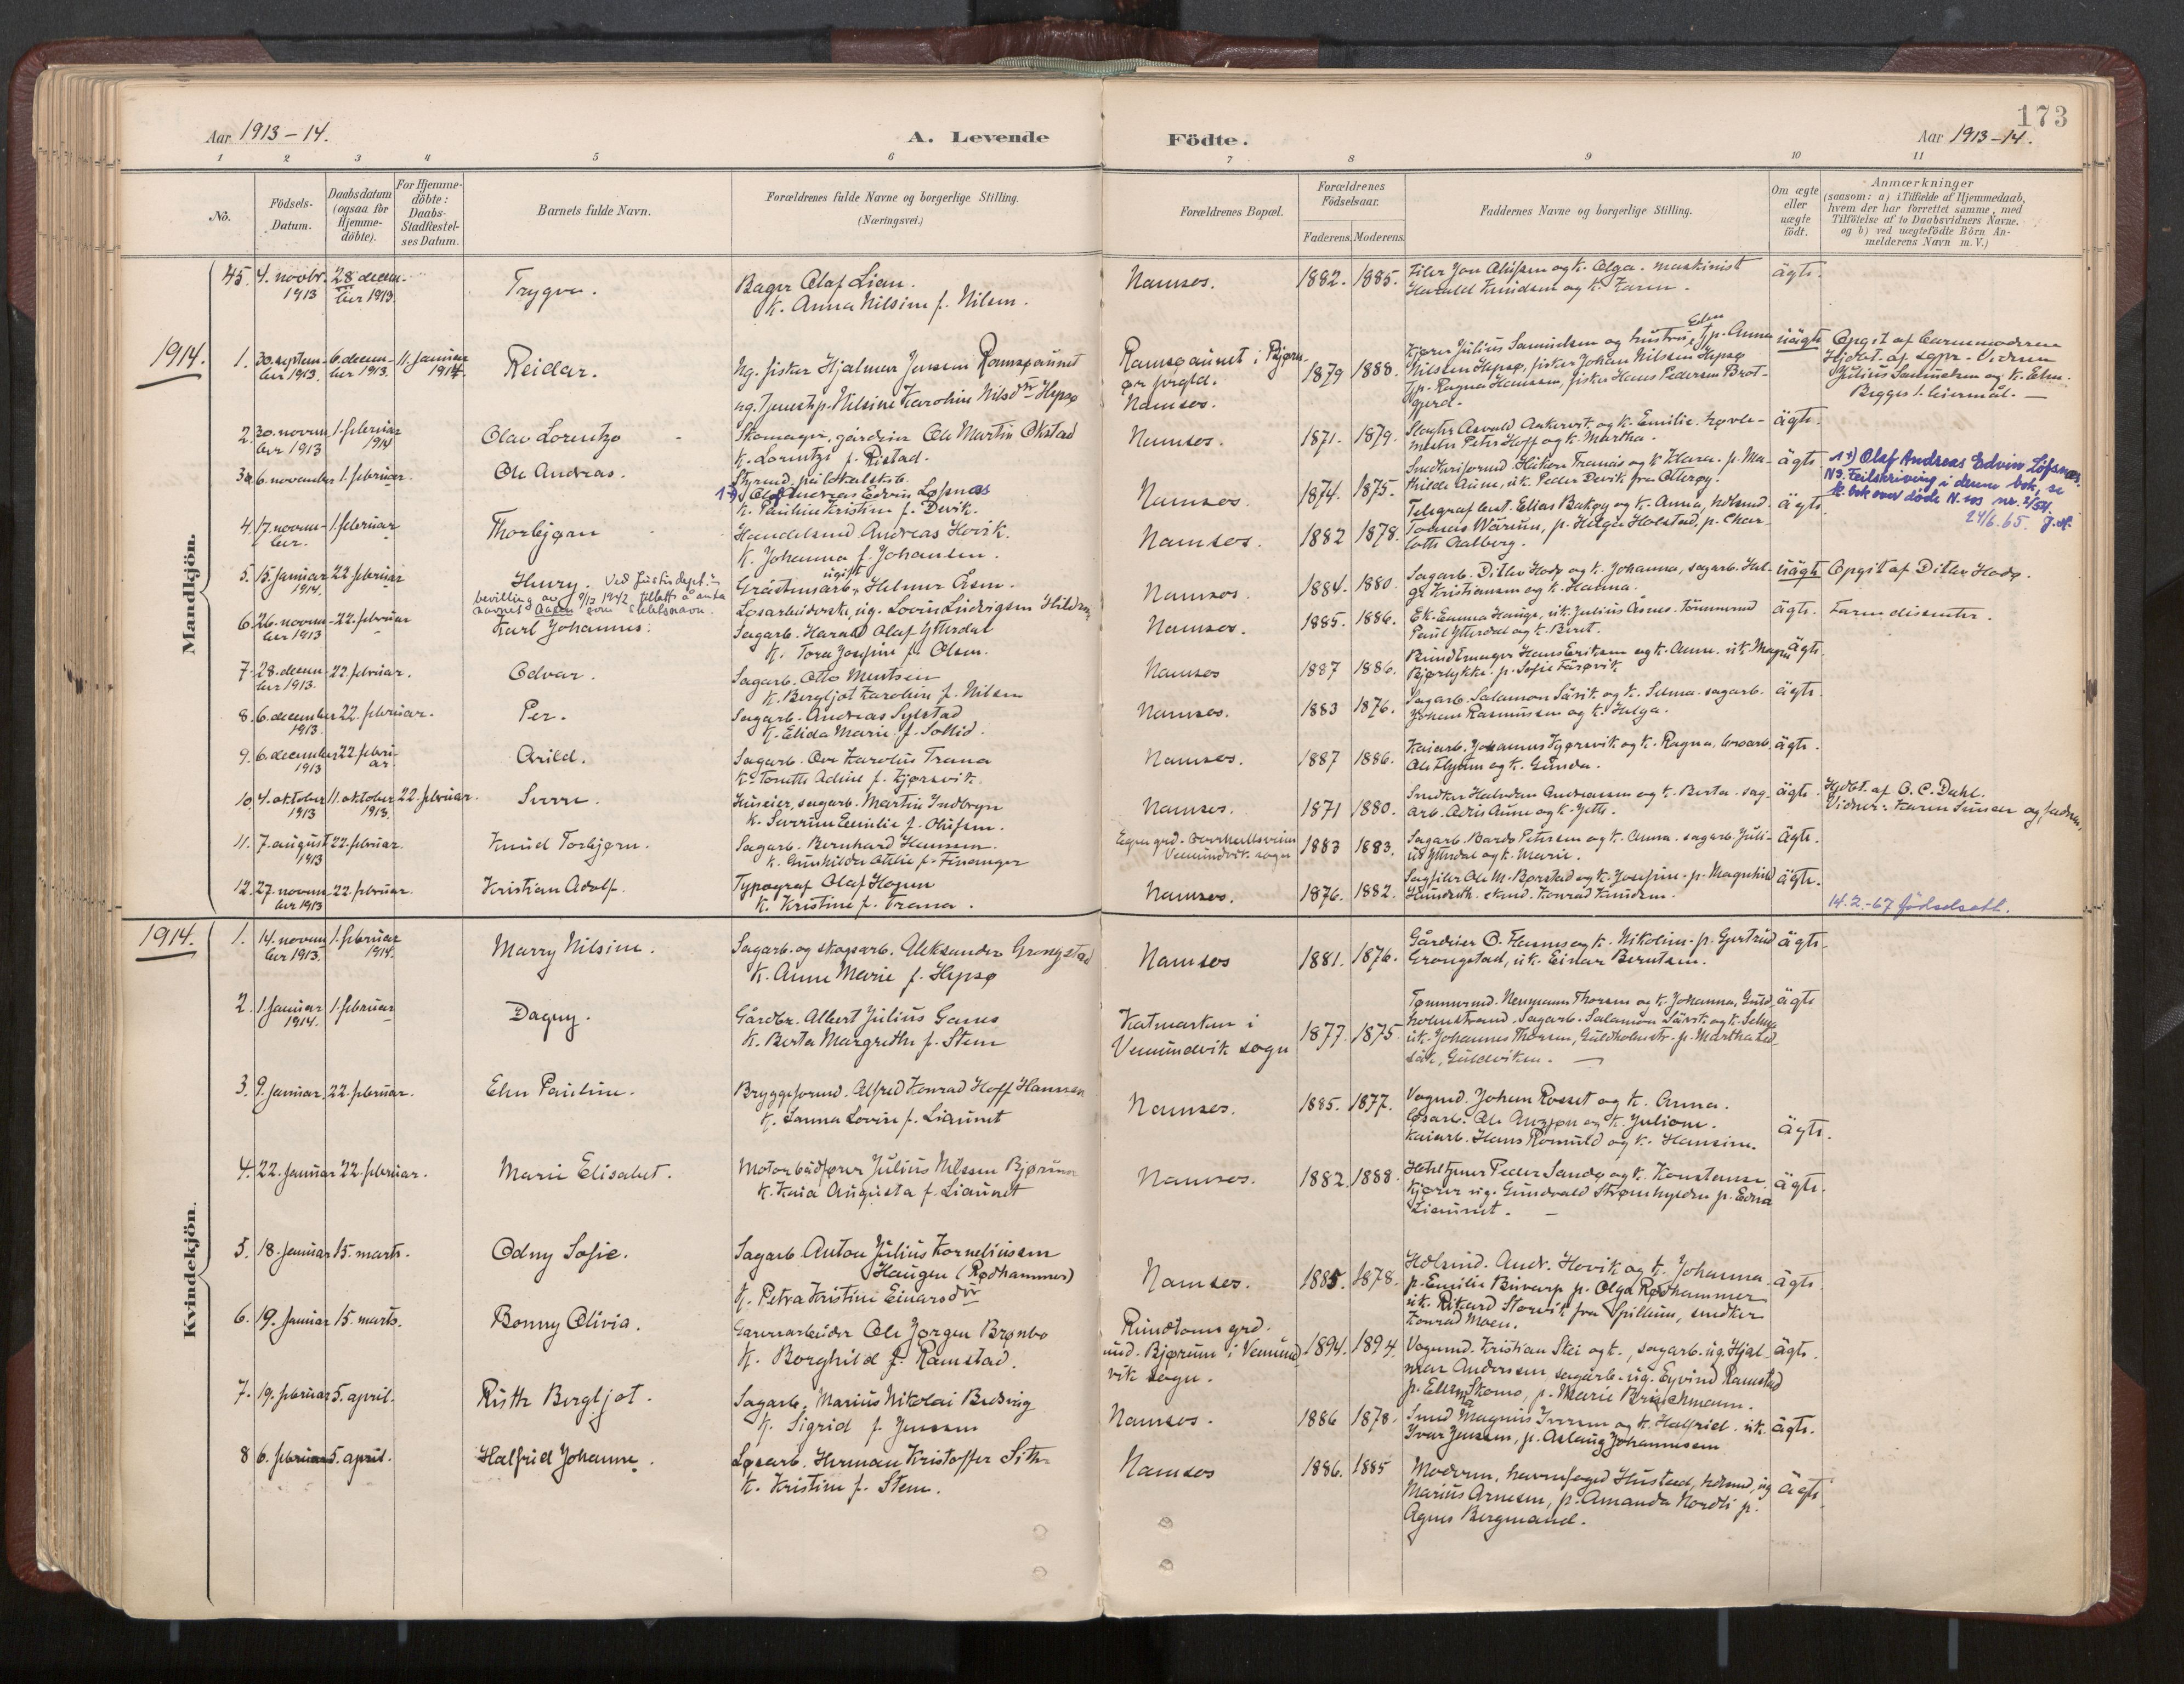 173
Aar 1913-14.
A. Levende
Födte.
Aar 1913-14.
1 2 3 4 5 6 7 8 9 10 11
No.
Födsels-
Datum.
Daabsdatum
(ogsaa for
Hjemme-
döbte).
For Hjemme-
döbte:
Daabs-
Stadfæstel-
ses Datum.
Barnets fulde Navn.
Forældrenes fulde Navne og borgerlige Stilling.
(Næringsvei.)
Forældrenes Bopæl.
Forældrenes
Födselsaar.
Faderens. Moderens.
Faddernes Navne og borgerlige Stilling.
Om ægte
eller
uægte
födt.
Anmærkninger
(saasom: a) i Tilfælde af Hjemmedaab,
hvem der har forrettet samme, med
Tilföielse af to Daabsvidners Navne.
og b) ved uægtefödte Börn An-
melderens Navn m. V.)
Mandkjön.
45. 4. novbr. 1913
28 decem-
ber 1913.
Trygve.
Bager Olaf Lian.
K. Anna Nilsine f. Nilsen.
Namsos.
1882. 1885.
Harald Knudsen og k. Karen.
ägte.
1914.
1. 30. septem-
ber 1913.
6. decem-
ber 1913.
11. januar
1914.
Reidar.
Ug. fisker Hjalmar Jensen Ramsøaunet
ug. tjenestep. Nilsine Karoline Nilsdtr Hepsø
Ramsøaunet i Bjørn-
ør prgld.
Namsos.
1879 1888.
Kjører Julius Samuelsen og hustru Elen, tjp. Anna
Nilssen Hepsø, fisker Johan Nilssen Hepsø
Tjp. Ragna Hanssen, fisker Hans Pedersen Brat-
gjerd.
uägte
Opgit af barnemoderen
Hjdøbt. af sgpr. Vidner
Julius Samuelsen og k. Elen.
Begges 1. leiermål. —
2. 30. novem-
ber 1913
1. februar
1914
Olav Lorentzo
Skomager, gårdeier Ole Martin Økstad
K. Lorentze f. Ristad.
Namsos.
1871. 1879.
mester Peter Hoff og k. Martha.
ägte.
3a 6. november 1. februar.
Ole Andreas.
1*) Olaf Andreas Edvin Løfsnæs
K. Pauline Kristine f. Devik.
Namsos.
1874. 1875.
thilde Aune, uk. Peder Devik fra Otterøy.
ägte
1*) Olaf Andreas Edvin Löfsnæs.
NB. Feilskriving i denne bok, se
k. bok over døde N.sos nr. 2/54.
24/6.65. J.N.
4. 17. novem-
ber.
1. februar
Thorbjørn
Handelsmd Andreas Hovik.
K. Johanna f. Johansen.
Namsos.
1882 1878.
Telegrafbest. Elias Bakøy og k. Anna, hdlsmd.
lotte Aalberg.
ägte.
5. 15. januar
1914.
22. februar
Henry. Ved Justisdept.s
bevilling av 9/12 1942 tillatt å anta
navnet Aasen som slektsnavn.
ugift
Gråstensarb. Helmer Åsen.
Løsarbeiderske, ug. Lovise Ludvigsen Hildrem
Namsos.
1884. 1880
Sagarb. Ditlev Hodø og k. Johanna, sagarb. Hel-
ge Kristiansen og k. Hanna.
uägte
Opgit af Ditlev Hodø.
6. 26. novem-
ber 1913
22. februar
Karl Johannes.
Sagarb. Harald Olaf Ytterdal
K. Tora Josefine f. Olsen.
Namsos.
1885. 1886.
Ek. Emma Hauge, uk. Julius Åsnes. Tømmermd
Paul Ytterdal og k. Beret.
ägte.
Faren dissenter.
7. 28. decem-
ber 1913.
22. februar.
Odvar.
Sagarb. Otto Mentsen
K. Bergljot Karoline f. Nilsen
Namsos
1887 1886.
Bundtmager Hans Eriksen og k. Anne. uk. Magne
Bjørlykke. p. Sofie Farøvik
ägte.
8. 6. december
1913.
22. februar.
Per.
Sagarb. Andreas Sylstad
K. Elida Marie f. Sollid.
Namsos.
1883 1876.
Sagarb. Salamon Sävik og k. Selma. sagarb.
Johan Rasmussen og k. Helga.
ägte.
9. 6. december
1913
22. febru-
ar
Arild.
Sagarb. Ove Karolius Trana
K. Torette Adine f. Kjørsvik.
Namsos.
1887 1886.
Kaiarb. Johannes Kjørsvik og k. Ragna,
og k. Gunda.
ägte.
10. 4. oktober
1913
11. oktober
1913.
22. februar.
Sverre.
Huseier, sagarb. Martin Indbryn
K. Severine Emilie f. Olufsen.
Namsos.
1871 1880.
Smedker Halvdan Andreassen og k. Berta. sag-
arb. Adris Aune og k. Jette.
ägte.
Hjdbt. af O. C. Dahl.
Vidner: Karen og faderen.
11. 7. august
1913
22. februar.
Knud Torbjørn.
Sagarb. Bernhard Hansen.
K. Gunhilda Otelie f. Finanger
Vemundvik sogn
1883 1883.
Sagarb. Bardo Petersen og k. Anna. sagarb. Juli-
us Ytterdal og k. Marie.
ägte.
12. 27. novem-
ber 1913
22. februar.
Kristian Adolf.
Typograf Olaf Hagen
K. Kristine f. Trana.
Namsos.
1876. 1882.
Sagfiler Ole M. Børstad og k. Josefine. p. Magnhild
Konrad Knudsen.
ägte.
14.2.-67 fødselsatt.
Kvindekjön.
1914.
1. 14. novem-
ber 1913.
1. februar
1914.
Marry Nilsine.
Sagarb. og skogsarb. Aleksander Grongstad
K. Anne Marie f. Hepsø
Namsos
1881. 1876.
Gårdeier O. Hasnes og k. Nikoline. p. Gjertrud
Grongstad, uk. Einar Berntsen.
ägte.
2. 1. januar
1914.
1. februar
Dagny.
Gårdbr. Albert Julius Ganes
K. Berta Margrethe f. Stene
Katmarken i
Vemundvik sogn
1877. 1875
Tømmermd. Neumann Thorsen og k. Johanna, Guld-
holmstrand. Sagarb. Salamon Sävik og k. Selma
uk. Johannes Thorsen, Guldholmstr. p. Martha Sed-
säk, Guldviken. —
ägte
3. 9. januar. 22. februar.
Elen Pauline.
Bryggeformd. Alfred Konrad Hoff Hanssen
K. Sanna Lovise f. Liaunet
Namsos.
1885. 1877.
Vognmd. Johan Rosset og k. Anna.
Løsarb. Ole Anzjøn og k. Juliane.
Kaiarb. Hans Romuld og k. Hansine.
ägte.
4. 22. januar 22. februar.
Marie Elisabet.
Motorbådfører Julius Nilssen Bjørum
K. Kaia Augusta f. Liaunet
Namsos.
1882. 1888.
Hoteltjener Peder Sandø og k. Konstanse.
Kjører ug. Gundvald Strømhylden p. Edna
Liaunet. —
ägte.
5. 18. januar 15. marts.
Odny Sofie.
Sagarb. Anton Julius Korneliussen
Haugen (Rødhammer)
K. Petra Kristine Einarsdtr
Namsos.
1885. 1878.
Hdlsmd. Andr. Hovik og k. Johanna.
p. Emilie Buvarp p. Olga Rødhammer
uk. Rikard Storvik fra Spillum, smedker
Konrad Moen.
ägte.
6. 19. januar 15. marts.
Bonny Olivia.
Garverarbeider Ole Jørgen Brønbo
K. Borghild f. Ramstad.
und. Bjørum i Vemund-
vik sogn.
1894. 1894.
Vognmd. Kristian Skei og k., sagarb. ug. Hjal-
mar Andersen, sagarb. ug. Eyvind Ramstad
p. Ellen Skomo, p. Marie Brüchmann.
ägte.
7. 19. februar 5. april.
Ruth Bergljot.
Sagarb. Marius Nikolai Budsvig
K. Sigrid f. Jensen
Namsos.
1886 1878.
Smed Magnus Iversen og k. Halfrid. uk.
Ivar Jenssen, p. Aslaug Johannessen
ägte.
8 6. februar 5. april.
Halfrid Johanne.
Løsarb. Herman Kristoffer Sith
K. Kristine f. Stene.
Namsos
1886. 1885
Moderen, havnefoged Hustad, hdlsmd. ug
Marius Arnesen, p. Amanda Nordli p.
Agnes Bergmand.
ägte.